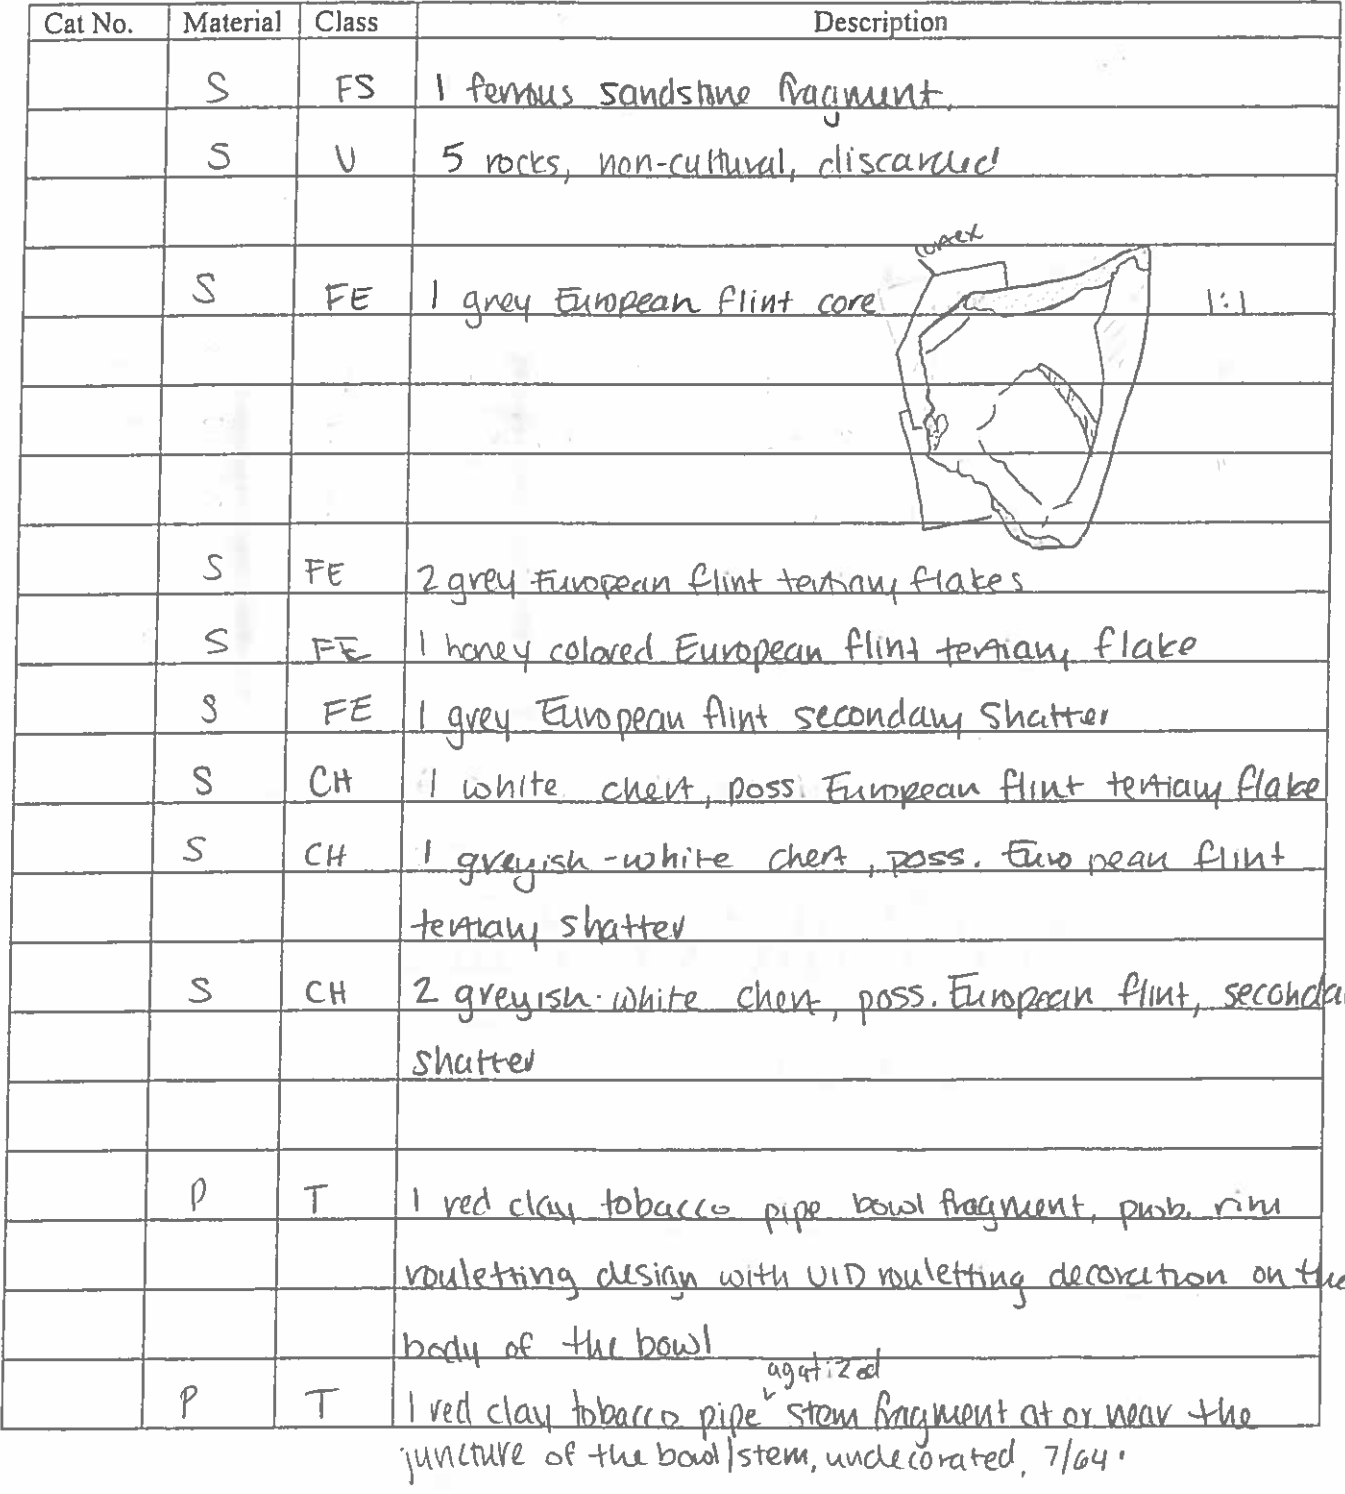 Cat No. Material Class Description
S FS 1 ferrous sandstone fragment.
S U 5 rocks, non-cultural, discarded
cortex
S FE 1 grey European flint core 1:1
S FE 2 grey European flint tertiary flakes
S FE 1 honey colored European flint tertiary flake
S FE 1 grey European flint secondary shatter
S CH 1 white chert, poss. European flint tertiary flake
S CH 1 greyish-white chert, poss. European flint
tertiary shatter
S CH 2 greyish-white chert, poss. European flint, seconda
shatter
P T 1 red clay tobacco pipe bowl fragment, prob. rim
rouletting design with UID rouletting decoration on the
body of the bowl
agatized
P T 1 red clay tobacco pipe stem fragment at or near the
juncture of the bowl/stem, undecorated, 7/64"